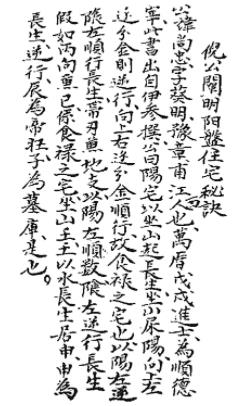 倪公闢明阳盤住宅秘訣
公諱尚忠字葵明豫章甫江人也萬曆戊戌進士為順德
宰此書出自伊参撰曰阳宅以坐山起長生坐小尿陽向上左
边分金則逆行向上右边分金順行故食禄之宅也以陽左逆
陰左順行長生帶刃黄地支以陽左順數陰左逆行長生
假如丙向黄巳係食禄之宅坐山壬士以水長生居申申為
長生逆行辰為帝狂子為墓庫是也。